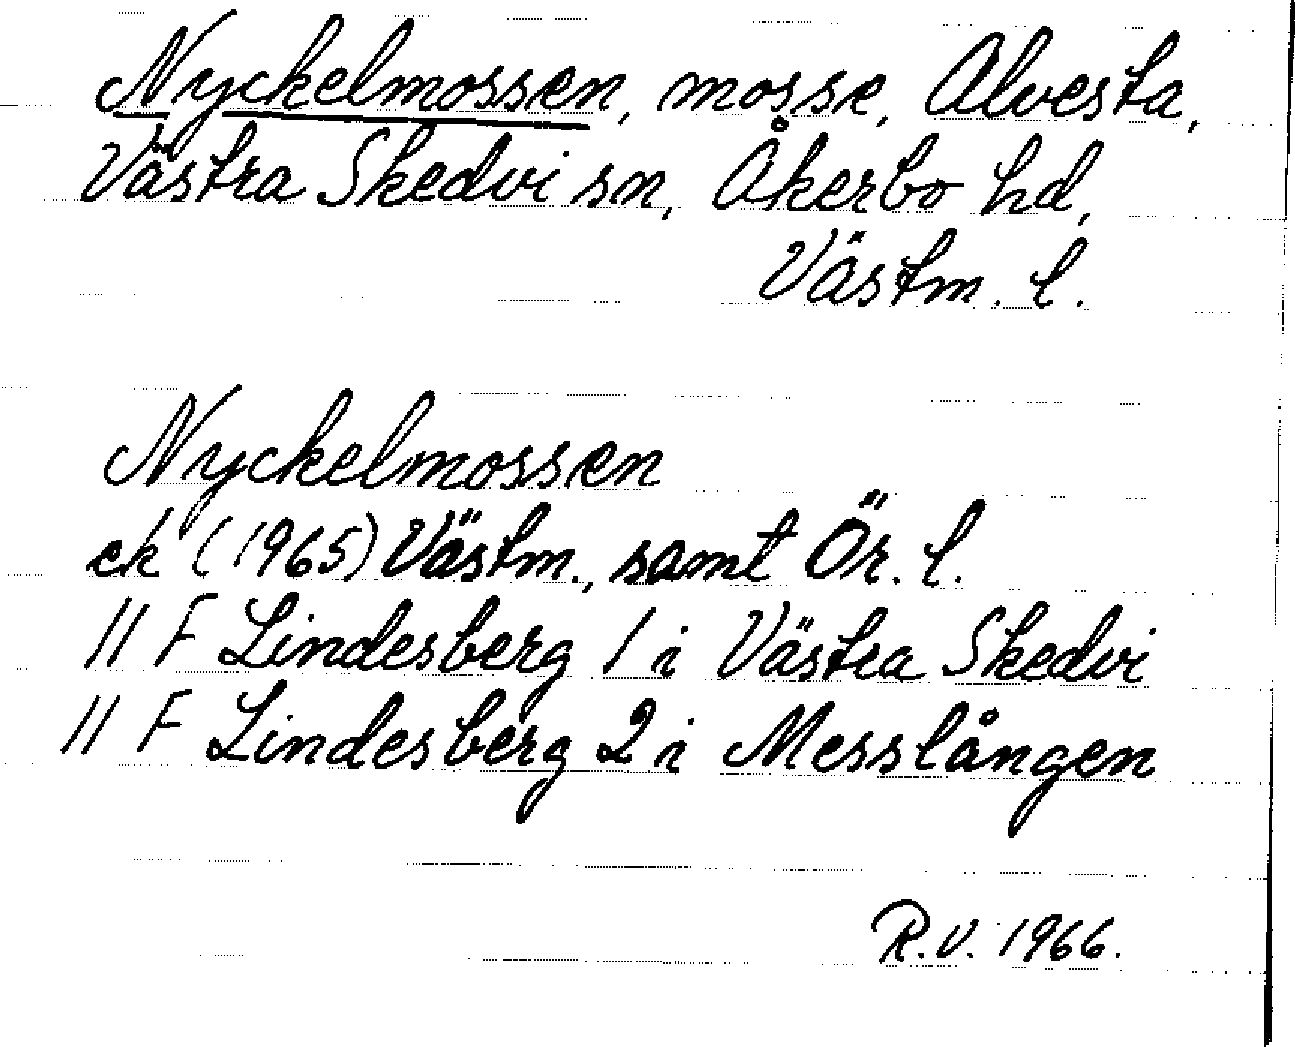 Nyckelmossen, mosse, Alvesta,
Västra Skedvi sn, Åkerbo hd,
Västm. l.
Nyckelmossen
ek (1965) Västm., samt Ör. l.
11 F Lindesberg 1 i Västra Skedvi
11 F Lindesberg 2 i Messlången
R.V. 1966.